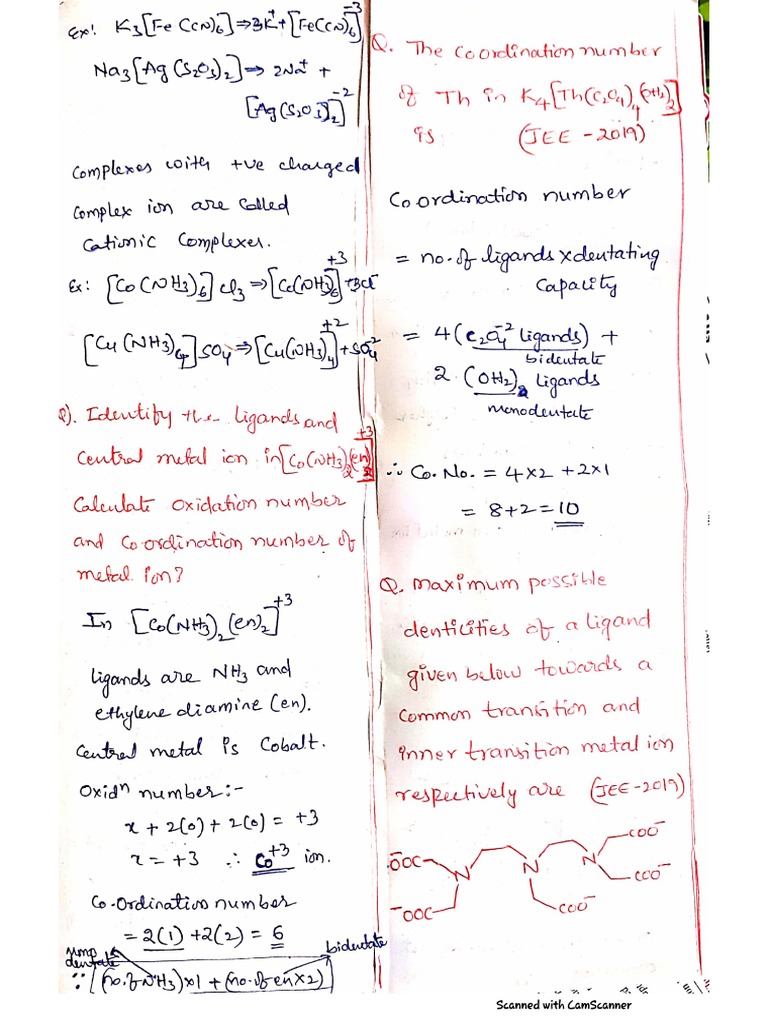 Ex: K3[Fe(CN)6] ⇒ 3K+ + [Fe(CN)6]-3
Na3[Ag(S2O3)2] ⇒ 2Na+ +
[Ag(S2O3)2]-2
Complexes with +ve charged
complex ion are called
Cationic Complexes.
Ex: [Co(NH3)6]Cl3 ⇒ [Co(NH3)6]+3 + 3Cl-
[Cu(NH3)4]SO4 ⇒ [Cu(NH3)4]+2 + SO4-2
Q). Identify the ligands and
central metal ion in [Co(NH3)2(en)2]+3
Calculate oxidation number
and Co-ordination number of
metal ion?
In [Co(NH3)2(en)2]+3
ligands are NH3 and
ethylene diamine (en).
Central metal is Cobalt.
Oxidn number:-
x + 2(0) + 2(0) = +3
x = +3 ∴ Co+3 ion.
Co-Ordination number
= 2(1) + 2(2) = 6
mono dentate
bidentate
∵ [(no. of NH3)x1 + (no. of en x 2)]
Q. The Coordination number
of Th in K4[Th(C2O4)4(OH2)2]
is (JEE - 2019)
Coordination number
= no. of ligands x dentating
Capacity
= 4 (C2O4-2 ligands) +
bidentate
2 (OH2)2 ligands
monodentate
∴ Co. No. = 4x2 + 2x1
= 8+2 = 10
Q. Maximum possible
denticities of a ligand
given below towards a
common transition and
inner transition metal ion
respectively are (JEE-2019)
COO-
-OOC
N
N
N
COO-
-OOC
COO-
Scanned with CamScanner